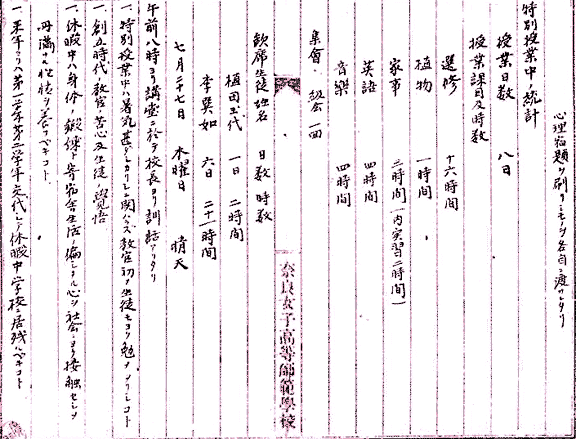 心理宿題ヲ刷リシモノヲ各自ニ渡サレタリ
特別授業中ノ統計
授業日数 八日
授業課目及時数
選修 十六時間
植物 一時間
家事 三時間(内実習二時間)
英語 四時間
音樂 四時間
集會 級会一回
奈良女子高等師範學校
欠席生徒姓名 日数 時数
植田 代 一日 二時間
李巽如 六日 二十一時間
七月二十七日 木曜日 晴天
午前八時ヨリ講堂ニ於テ校長ヨリ訓話アリタリ
一、特別授業中ハ暑気甚ダシカリシニ関ハラズ教官初メ生徒モヨク勉メリシコト
一、創立時代ノ教官ノ苦心及生徒ノ覚悟
一、休暇中ハ身体ノ鍛錬ト寄宿舎生活ノ偏シタル心ヲ社会ニヨリ接触セシメ
円満ナル性情ヲ養フベキコト、
一、来年ヨリハ第一学年第二学年交代シテ休暇中学校ニ居残ルベキコト